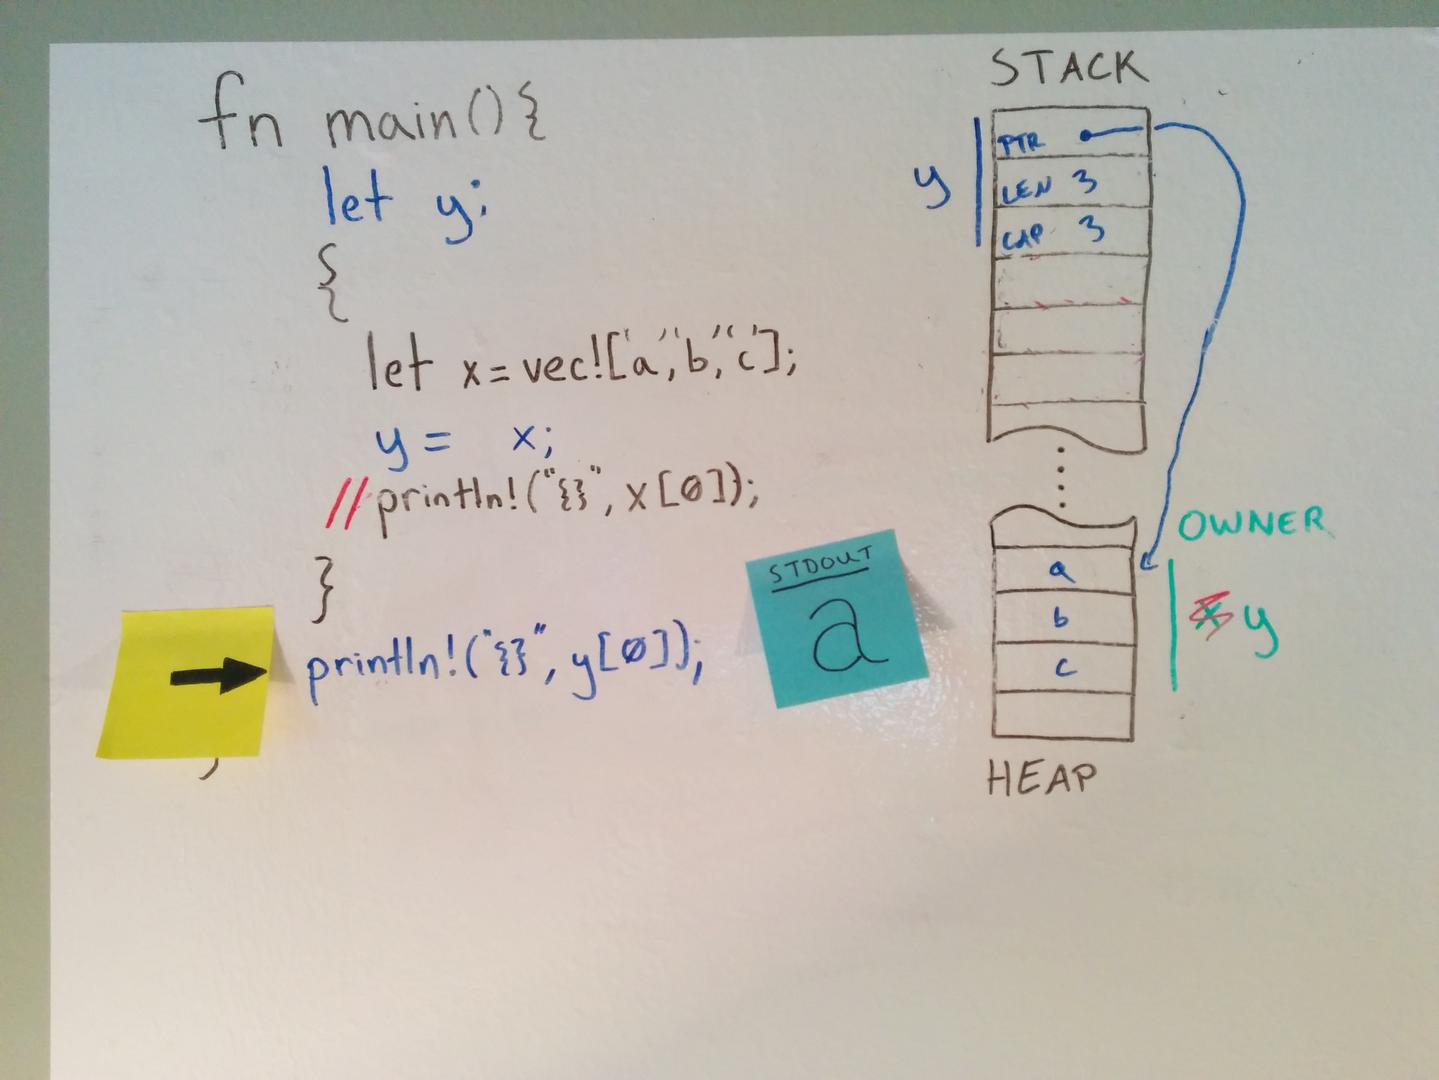 fn main(){
let y;
{
let x=vec!['a','b','c'];
y = x;
//println!("{}", x[0]);
}
println!("{}", y[0]);
STDOUT
a
STACK
y
PTR
LEN 3
CAP 3
OWNER
a
b
c
y
HEAP